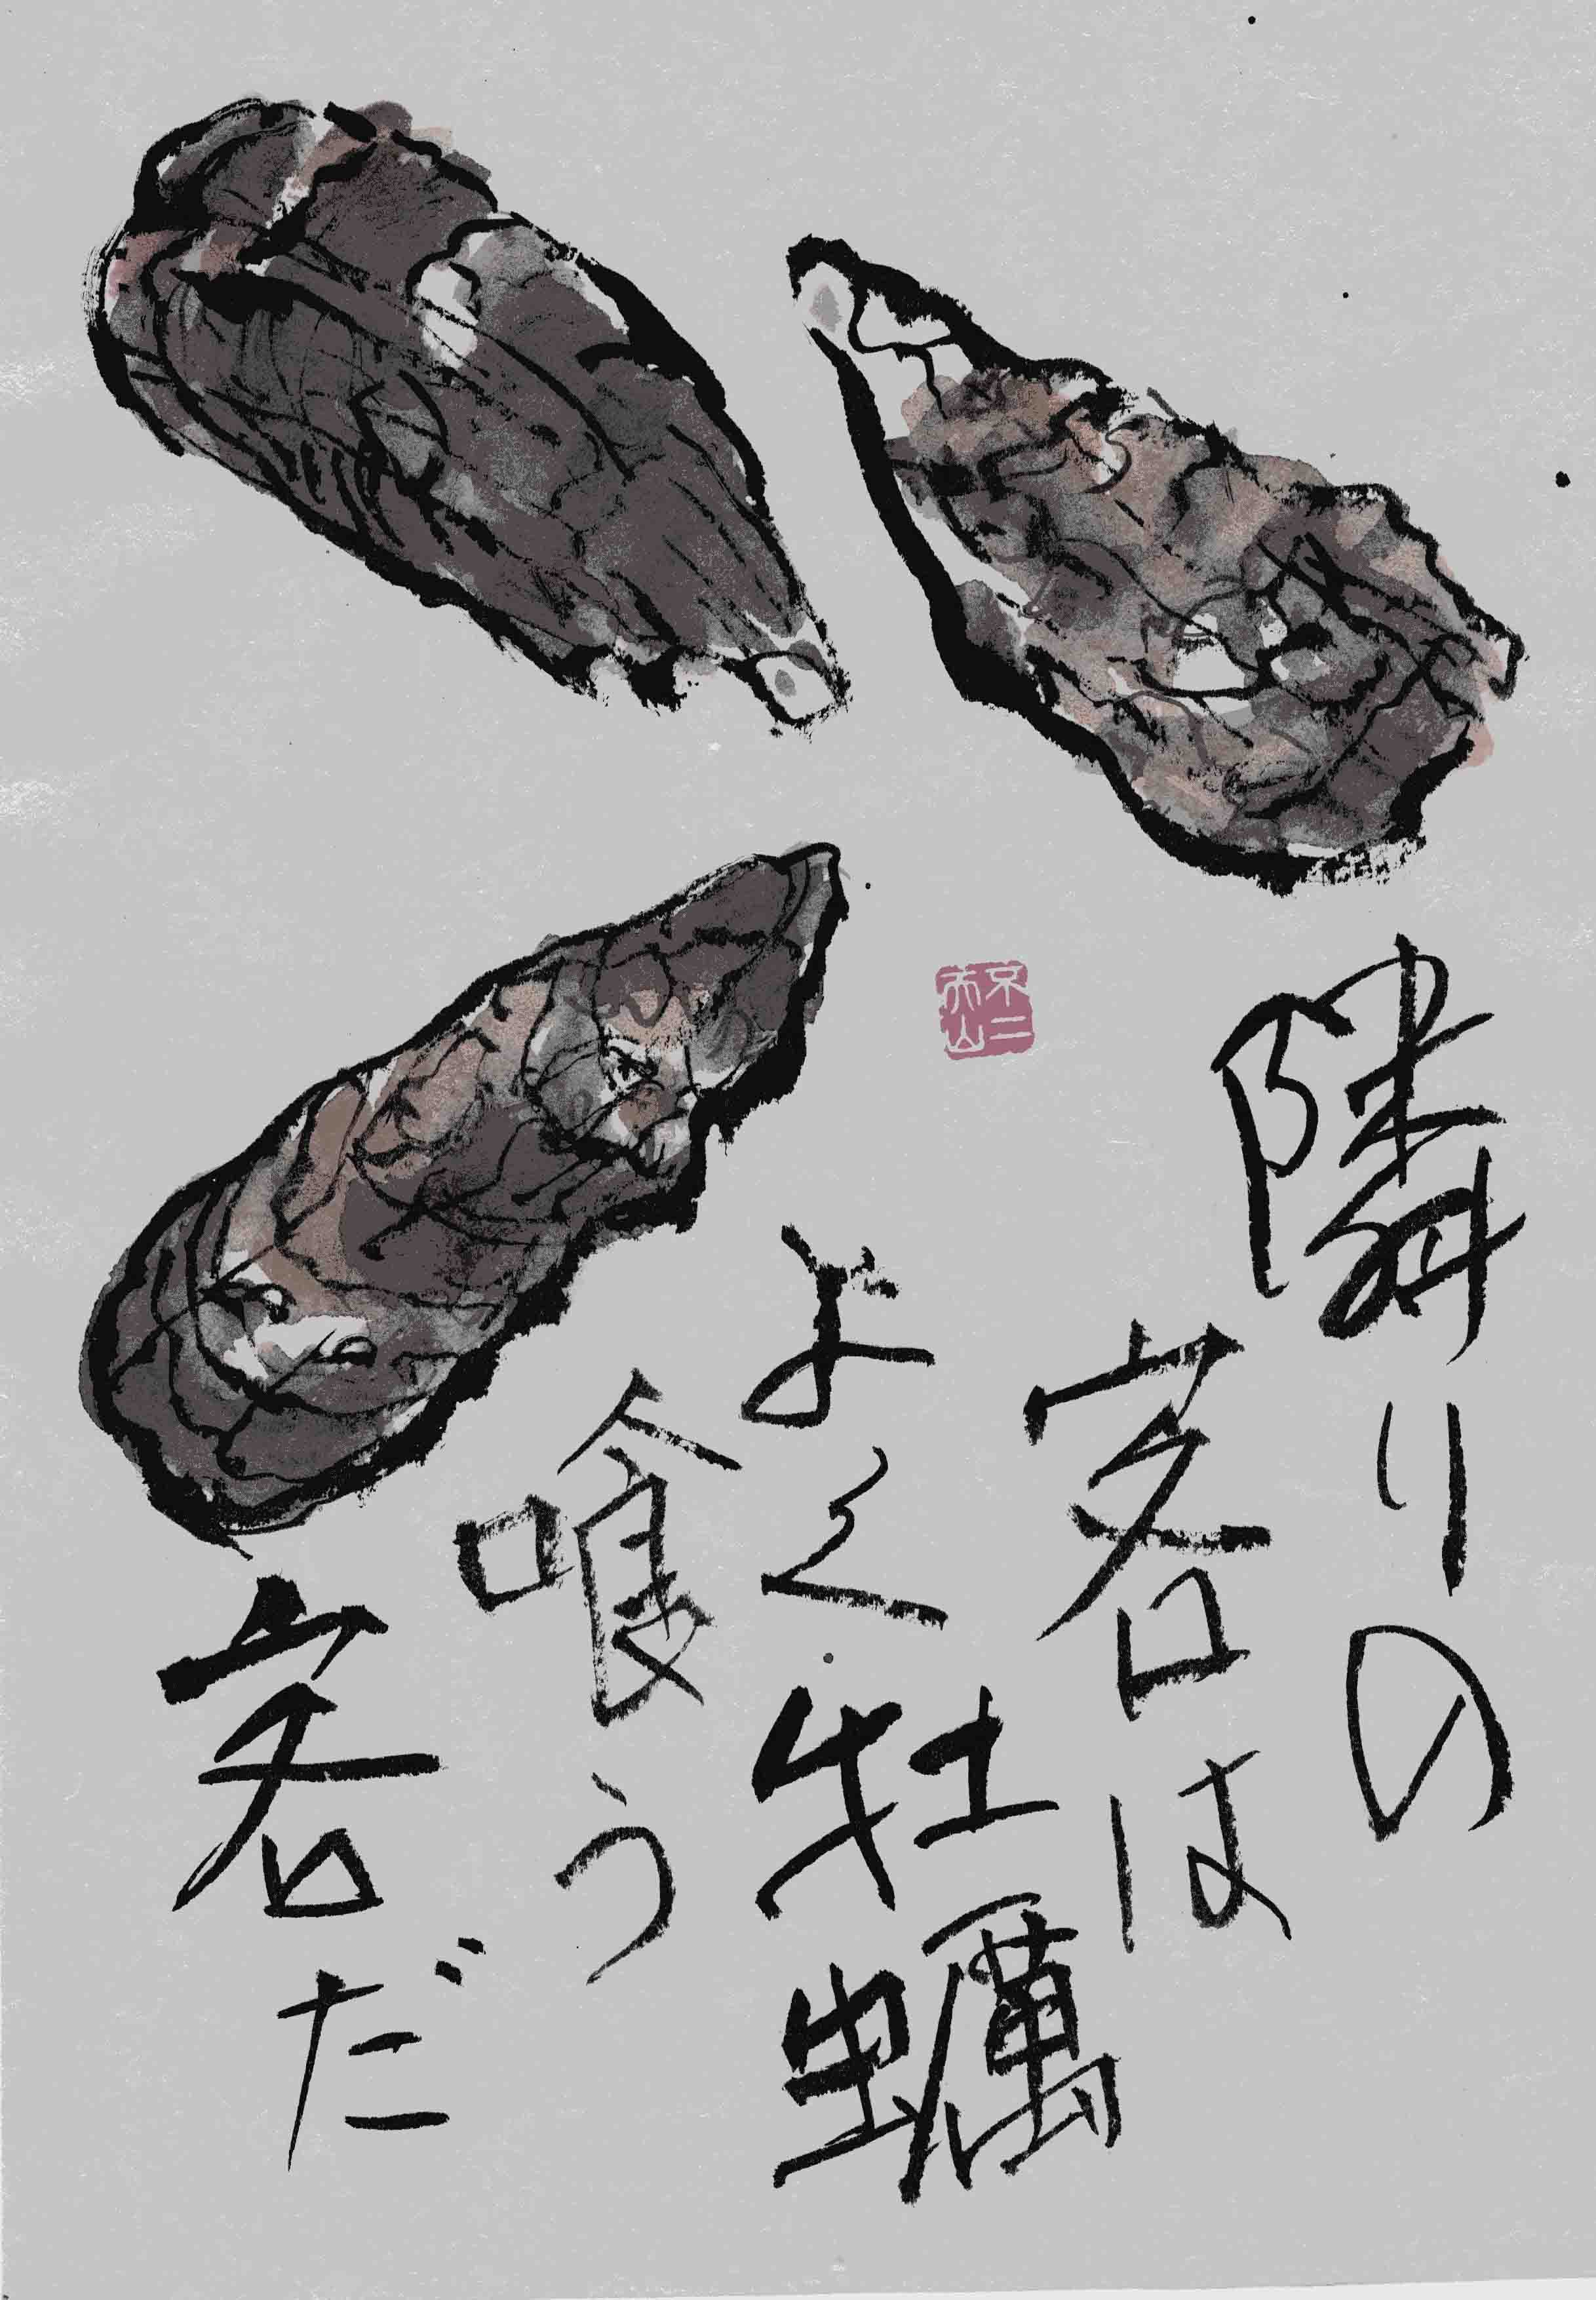 隣りの
客は
よく牡蠣
喰う
客だ